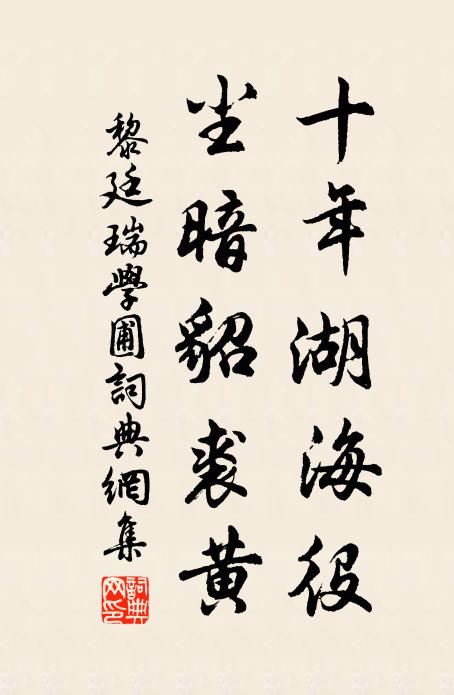 十年湖海役
尘暗貂裘黄
黎廷瑞學圃詞典網集
詞典网印